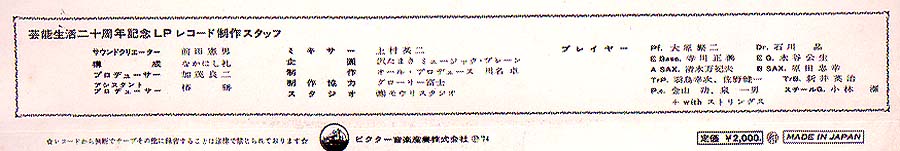 芸能生活二十周年記念LPレコード制作スタッフ
サウンドクリエーター 前田憲男
構成 なかにし礼
プロデューサー 加茂良二
アシスタントプロデューサー
ミキサー 上村英二
企画 沢たまき ミュージック・ブレーン
制作 オール・プロデュース 川名卓
制作協力 グローリー富士
スタジオ ㈱モウリスタジオ
プレイヤー
Pf. 大原繁二 Dr. 石川晶
E Bass. 寺川正興 E G. 水谷公生
A SAX. 清水万紀夫 B SAX. 原田忠幸
TrP. 羽鳥幸次、佐野健一 TrB. 新井英治
P.c. 金山功、泉一男 スチールG. 小林
+ with ストリングス
☆レコードから無断でテープその他に録音することは法律で禁じられております☆
ビクター音楽産業株式会社 Ⓟ '74
定価 ¥2,000. MADE IN JAPAN